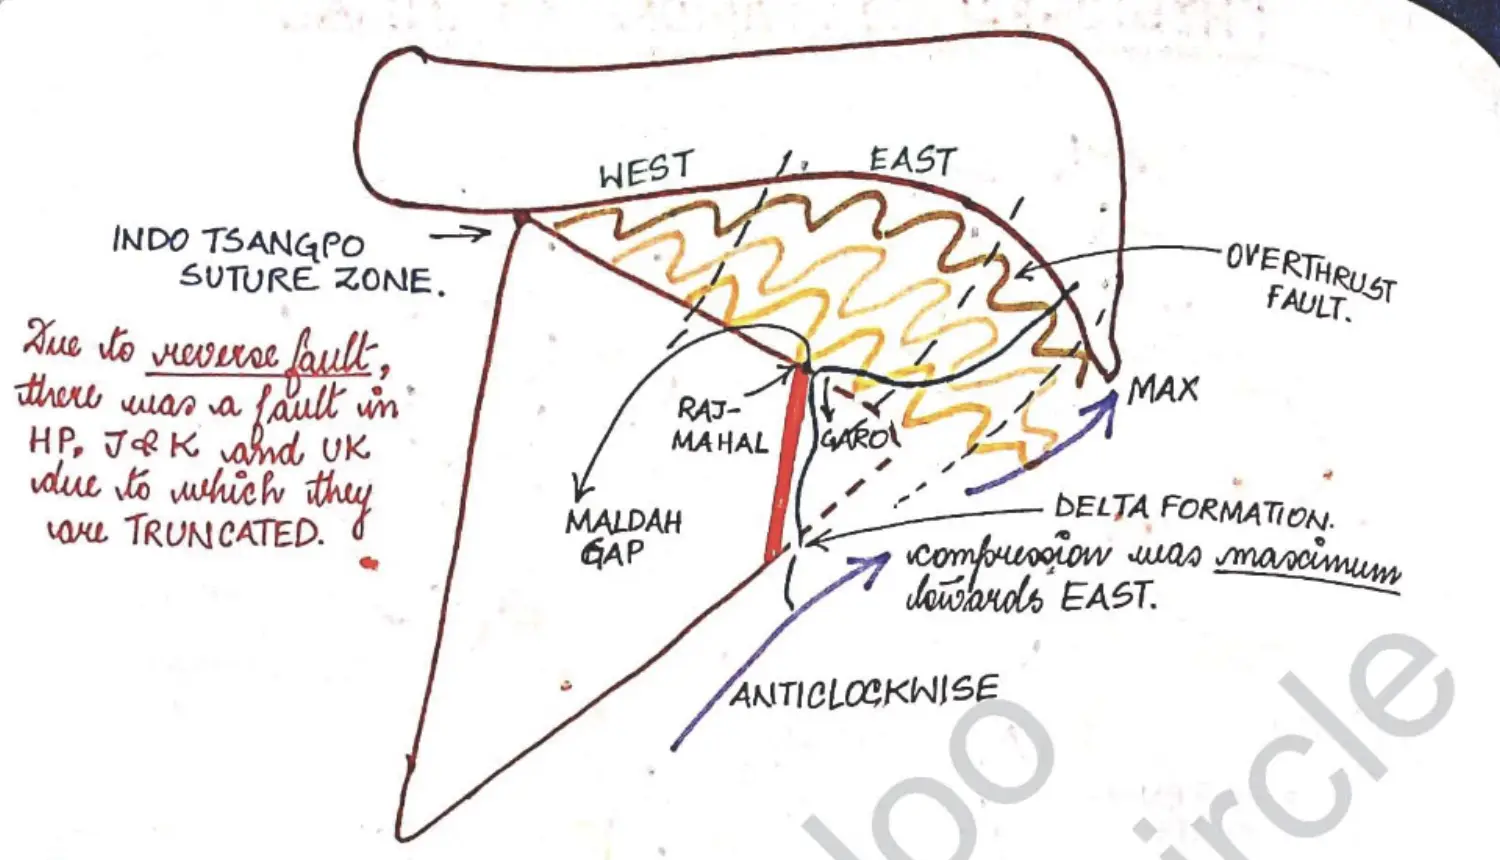 WEST
EAST
INDO TSANGPO
SUTURE ZONE.
OVERTHRUST
FAULT.
Due to reverse fault,
there was a fault in
HP, J&K and UK
due to which they
are TRUNCATED.
RAJ-
MAHAL
GARO
MAX
MALDAH
GAP
DELTA FORMATION.
compression was maximum
towards EAST.
ANTICLOCKWISE
loo
ircle